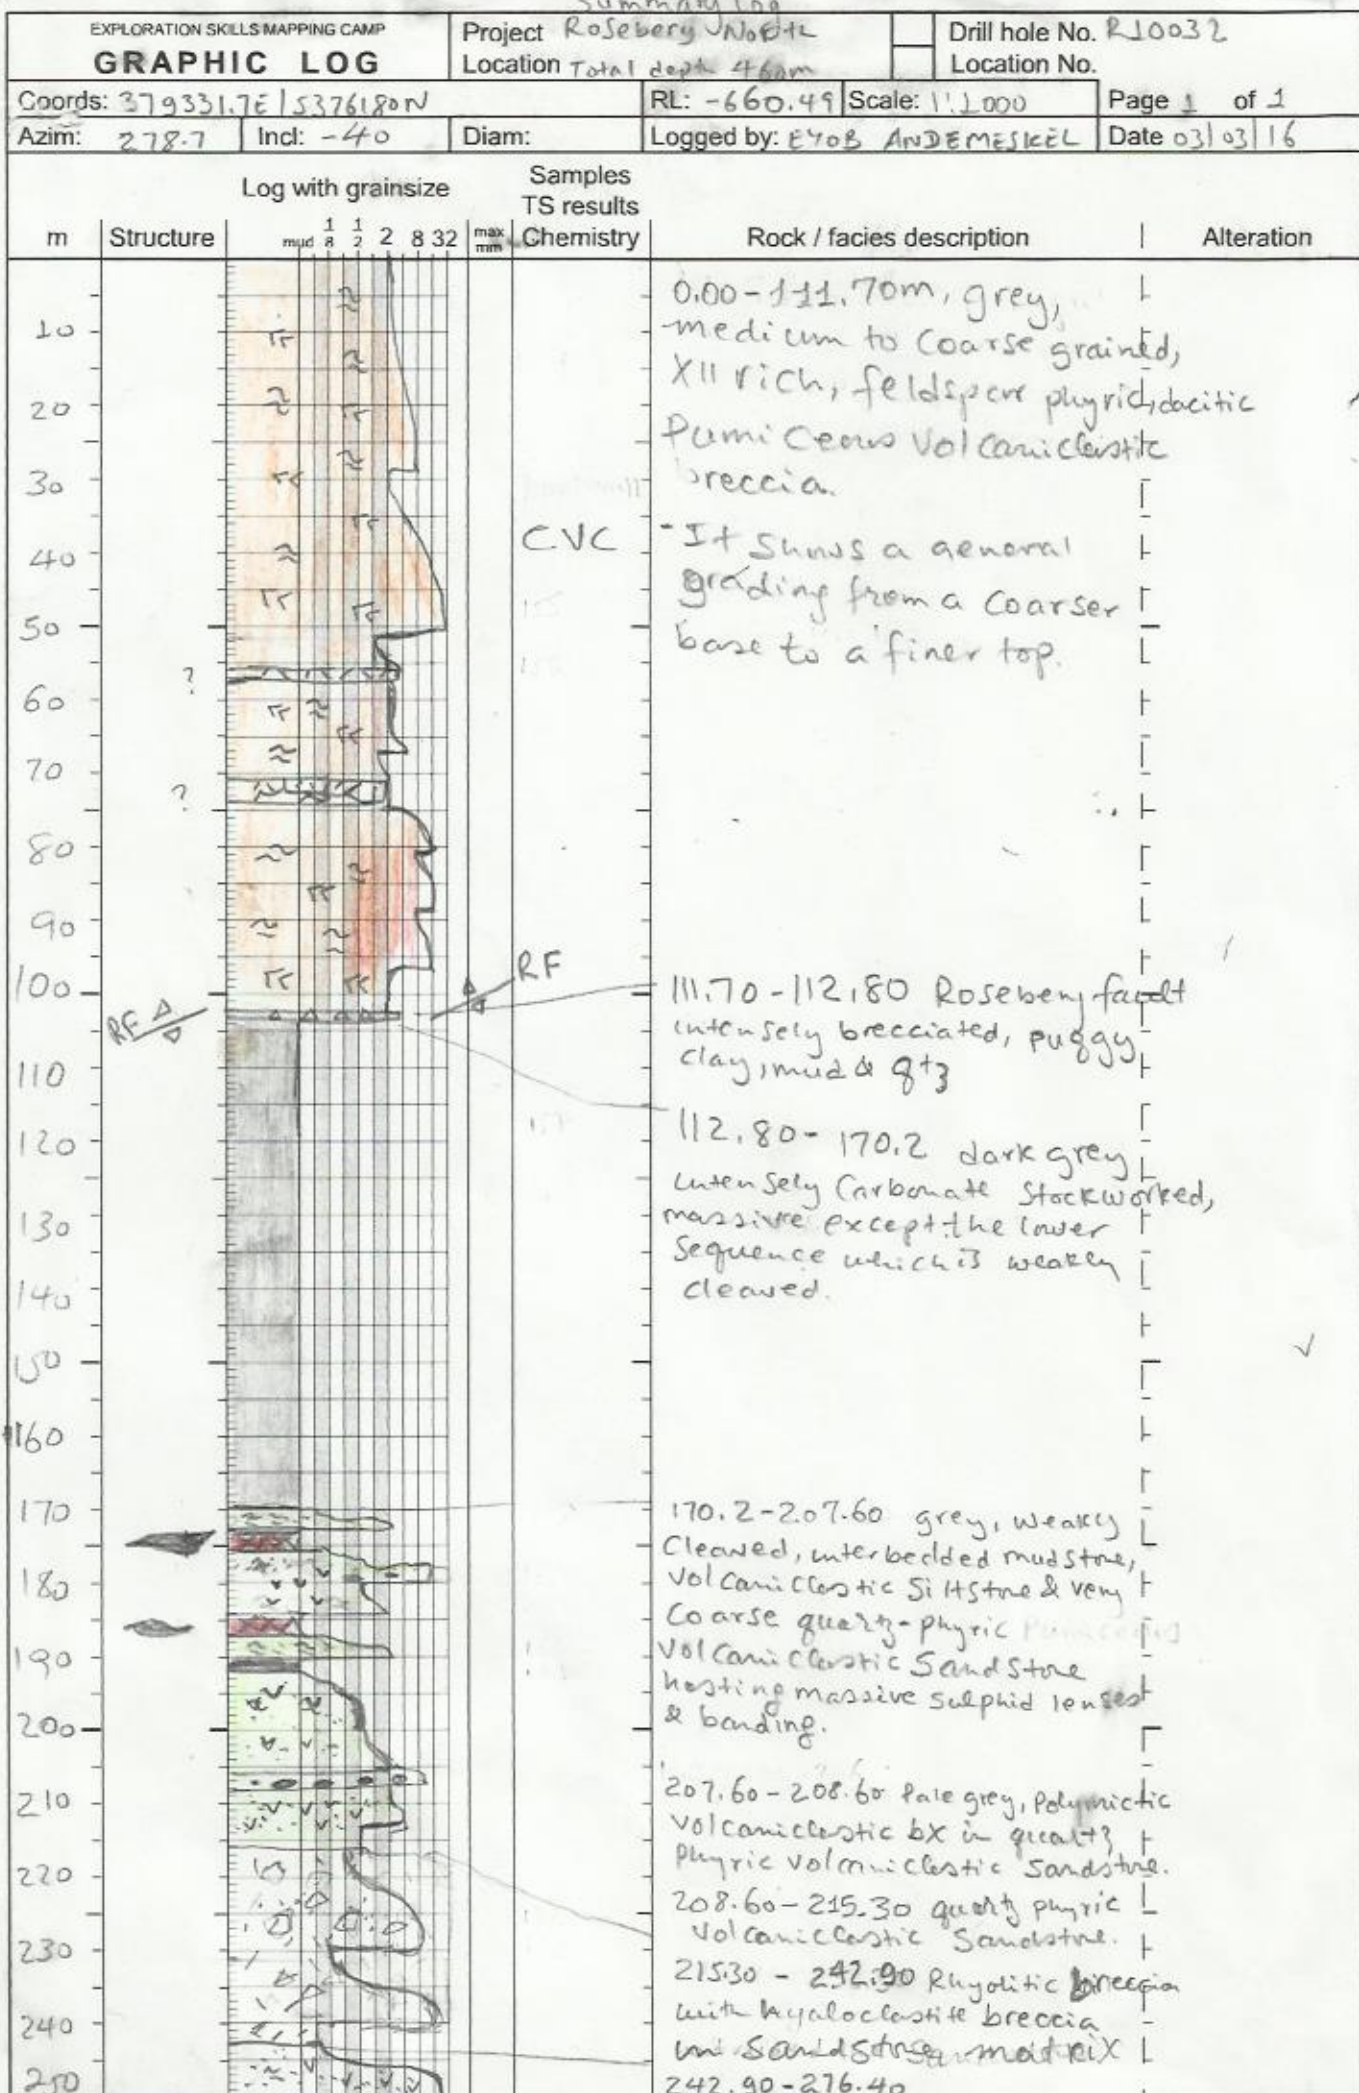 Summary log
EXPLORATION SKILLS MAPPING CAMP
GRAPHIC LOG
Project Rosebery North
Location Total depth 460m
Drill hole No. R10032
Location No.
Coords: 379331.7E / 5376180N
RL: -660.49
Scale: 1:1000
Page 1 of 1
Azim: 278.7
Incl: -40
Diam:
Logged by: EYOB ANDEMESKEL
Date 03/03/16
m
Structure
Log with grainsize
mud 1/8 1/2 2 8 32
max mm
Samples
TS results
Chemistry
Rock / facies description
Alteration
10
20
30
40
50
60
70
80
90
100
110
120
130
140
150
160
170
180
190
200
210
220
230
240
250
?
?
RF
CVC
RF
0.00-111.70m, grey,
medium to coarse grained,
Xll rich, feldspar phyric, dacitic
Pumiceous Volcaniclastic
breccia.
- It shows a general
grading from a coarser
base to a finer top.
111.70-112.80 Rosebery fault
intensely brecciated, puggy
clay, mud & qtz
112.80- 170.2 dark grey
intensely Carbonate Stockworked,
massive except the lower
Sequence which is weakly
cleaved.
170.2-207.60 grey, weakly
Cleaved, interbedded mudstone,
volcaniclastic Siltstone & very
Coarse quartz-phyric
volcaniclastic Sandstone
hosting massive sulphid lenses
& banding.
207.60-208.60 Pale grey, Polymictic
volcaniclastic bx in quartz
Phyric volcaniclastic Sandstone.
208.60-215.30 quartz phyric
volcaniclastic Sandstone.
215.30 - 242.90 Rhyolitic breccia
with hyaloclastite breccia
in Sandstone matrix
242.90-276.40